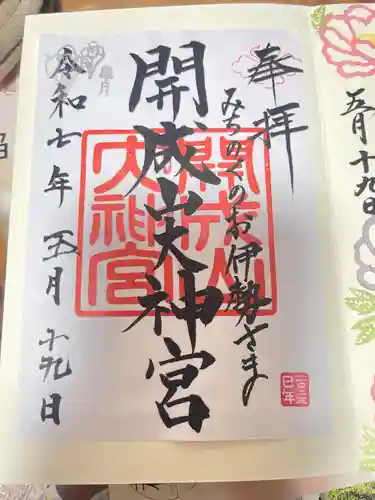 奉拝
みちのくのお伊勢さま
開成山大神宮
皐月
令和七年 五月 十九日
開成山
大神宮
二〇二五
巳年
五月十九日